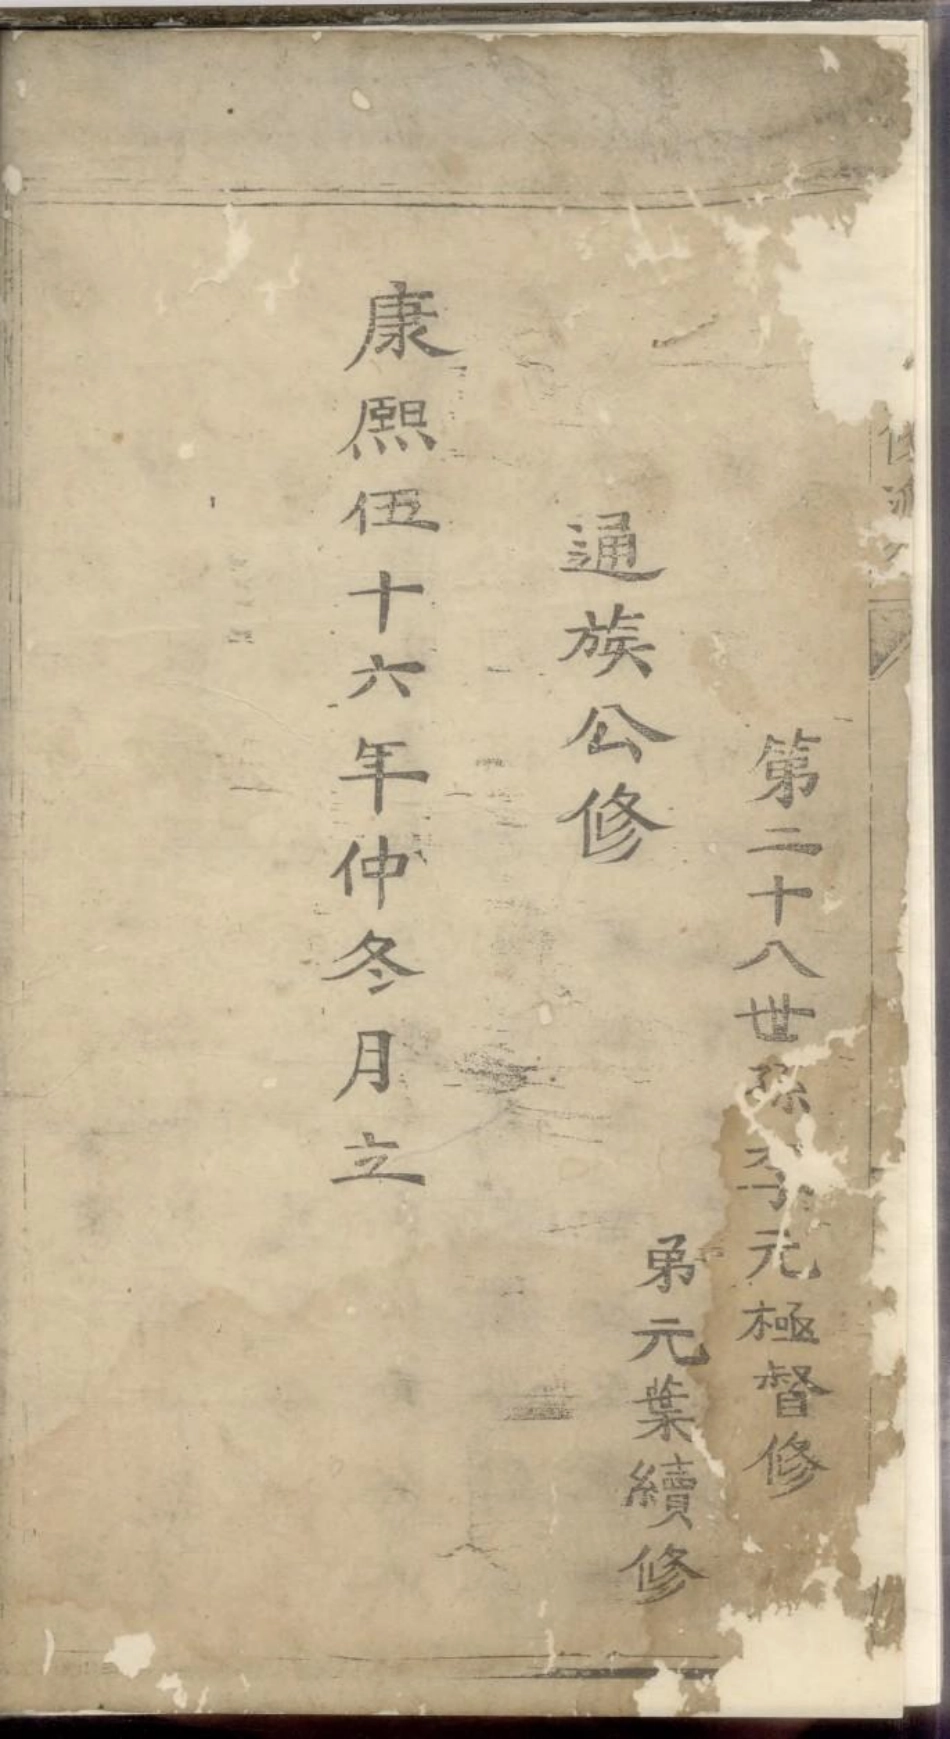 第二十八世孫李元極督修
弟元葉續修
通族公修
康熙伍十六年仲冬月立